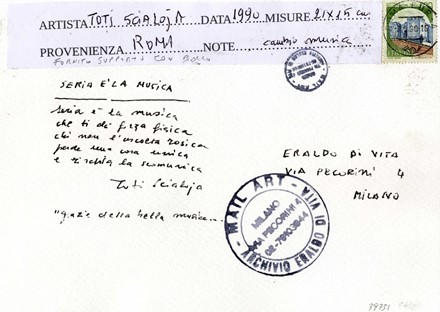 ARTISTA TOTI SCIALOJA DATA 1990 MISURE 21x15 cm
PROVENIENZA ROMA NOTE cambio musica
FORNITO SUPPORTO CON BOLLO
SERIA È LA MUSICA
Seria è la musica
che ti dà forza fisica
chi non l'ascolta rosica
perde una cosa unica
e rischia la scomunica
Toti Scialoja
"grazie della bella musica...
ERALDO DI VITA
VIA PECORINI 4
MILANO
MAIL ART - ARCHIVIO ERALDO DI VITA -
MILANO
VIA PECORINI 4
39751